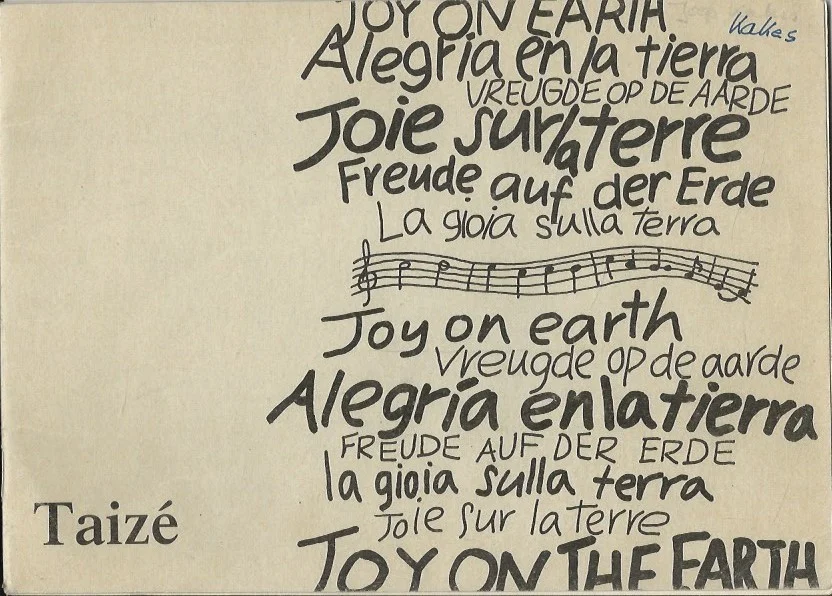 JOY ON EARTH
Kakes
Alegría en la tierra
VREUGDE OP DE AARDE
Joie sur la terre
Freude auf der Erde
La gioia sulla terra
Joy on earth
Vreugde op de aarde
Alegría en la tierra
FREUDE AUF DER ERDE
la gioia sulla terra
Joie sur la terre
Taizé
JOY ON THE EARTH